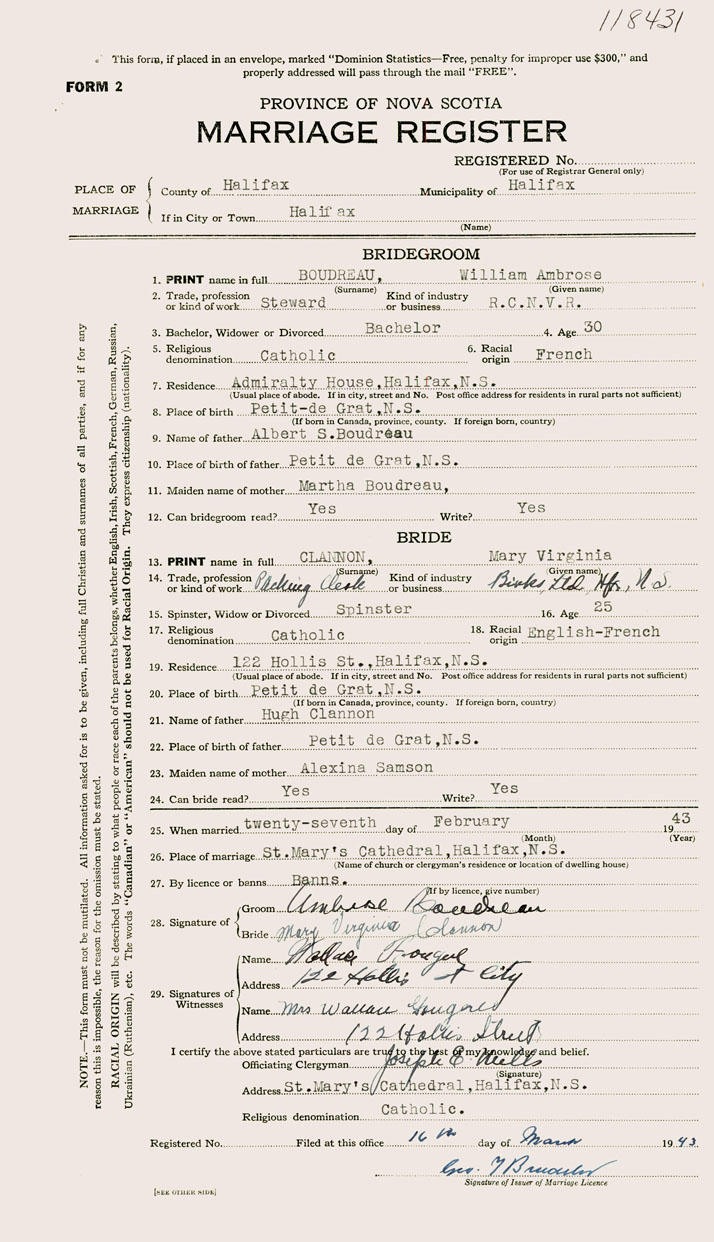 118431
This form, if placed in an envelope, marked "Dominion Statistics—Free, penalty for improper use $300," and
properly addressed will pass through the mail "FREE".
FORM 2
PROVINCE OF NOVA SCOTIA
MARRIAGE REGISTER
REGISTERED No.
(For use of Registrar General only)
PLACE OF MARRIAGE
County of Halifax Municipality of Halifax
If in City or Town Halifax
(Name)
BRIDEGROOM
1. PRINT name in full BOUDREAU, William Ambrose
(Surname) (Given name)
2. Trade, profession or kind of work Steward Kind of industry or business R.C.N.V.R.
3. Bachelor, Widower or Divorced Bachelor 4. Age 30
5. Religious denomination Catholic 6. Racial origin French
7. Residence Admiralty House,Halifax,N.S.
(Usual place of abode. If in city, street and No. Post office address for residents in rural parts not sufficient)
8. Place of birth Petit-de Grat,N.S.
(If born in Canada, province, county. If foreign born, country)
9. Name of father Albert S.Boudreau
10. Place of birth of father Petit de Grat,N.S.
11. Maiden name of mother Martha Boudreau,
12. Can bridegroom read? Yes Write? Yes
BRIDE
13. PRINT name in full CLANNON, Mary Virginia
(Surname) (Given name)
14. Trade, profession or kind of work Packing Clerk Kind of industry or business Birks Ltd. Hfx, N.S.
15. Spinster, Widow or Divorced Spinster 16. Age 25
17. Religious denomination Catholic 18. Racial origin English-French
19. Residence 122 Hollis St.,Halifax,N.S.
(Usual place of abode. If in city, street and No. Post office address for residents in rural parts not sufficient)
20. Place of birth Petit de Grat,N.S.
(If born in Canada, province, county. If foreign born, country)
21. Name of father Hugh Clannon
22. Place of birth of father Petit de Grat,N.S.
23. Maiden name of mother Alexina Samson
24. Can bride read? Yes Write? Yes
25. When married twenty-seventh day of February 1943
(Month) (Year)
26. Place of marriage St.Mary's Cathedral,Halifax,N.S.
(Name of church or clergyman's residence or location of dwelling house)
27. By licence or banns Banns.
(If by licence, give number)
28. Signature of
Groom Ambrose Boudreau
Bride Mary Virginia Clannon
29. Signatures of Witnesses
Name Wallace
Address 122 Hollis St City
Name Mrs Wallace
Address 122 Hollis Street
I certify the above stated particulars are true to the best of my knowledge and belief.
Officiating Clergyman Joseph E. Mills
(Signature)
Address St.Mary's Cathedral,Halifax,N.S.
Religious denomination Catholic.
Registered No. Filed at this office 16 th day of March 1943
Geo.
Signature of Issuer of Marriage Licence
[SEE OTHER SIDE]
NOTE.—This form must not be mutilated. All information asked for is to be given, including full Christian and surnames of all parties, and if for any
reason this is impossible, the reason for the omission must be stated.
RACIAL ORIGIN will be described by stating to what people or race each of the parents belongs, whether English, Irish, Scottish, French, German, Russian,
Ukrainian (Ruthenian), etc. The words "Canadian" or "American" should not be used for Racial Origin. They express citizenship (nationality).